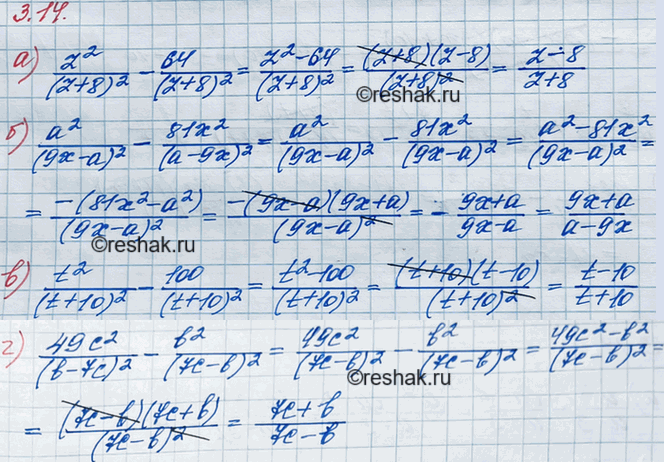 3.14.
а) z²/(z+8)² - 64/(z+8)² = (z²-64)/(z+8)² = (z+8)(z-8)/(z+8)² = (z-8)/(z+8)
©reshak.ru
б) a²/(9x-a)² - 81x²/(a-9x)² = a²/(9x-a)² - 81x²/(9x-a)² = (a²-81x²)/(9x-a)² =
= -(81x²-a²)/(9x-a)² = -(9x-a)(9x+a)/(9x-a)² = - (9x+a)/(9x-a) = (9x+a)/(a-9x)
©reshak.ru
в) t²/(t+10)² - 100/(t+10)² = (t²-100)/(t+10)² = (t+10)(t-10)/(t+10)² = (t-10)/(t+10)
г) 49c²/(b-7c)² - b²/(7c-b)² = 49c²/(7c-b)² - b²/(7c-b)² = (49c²-b²)/(7c-b)² =
©reshak.ru
= (7c-b)(7c+b)/(7c-b)² = (7c+b)/(7c-b)